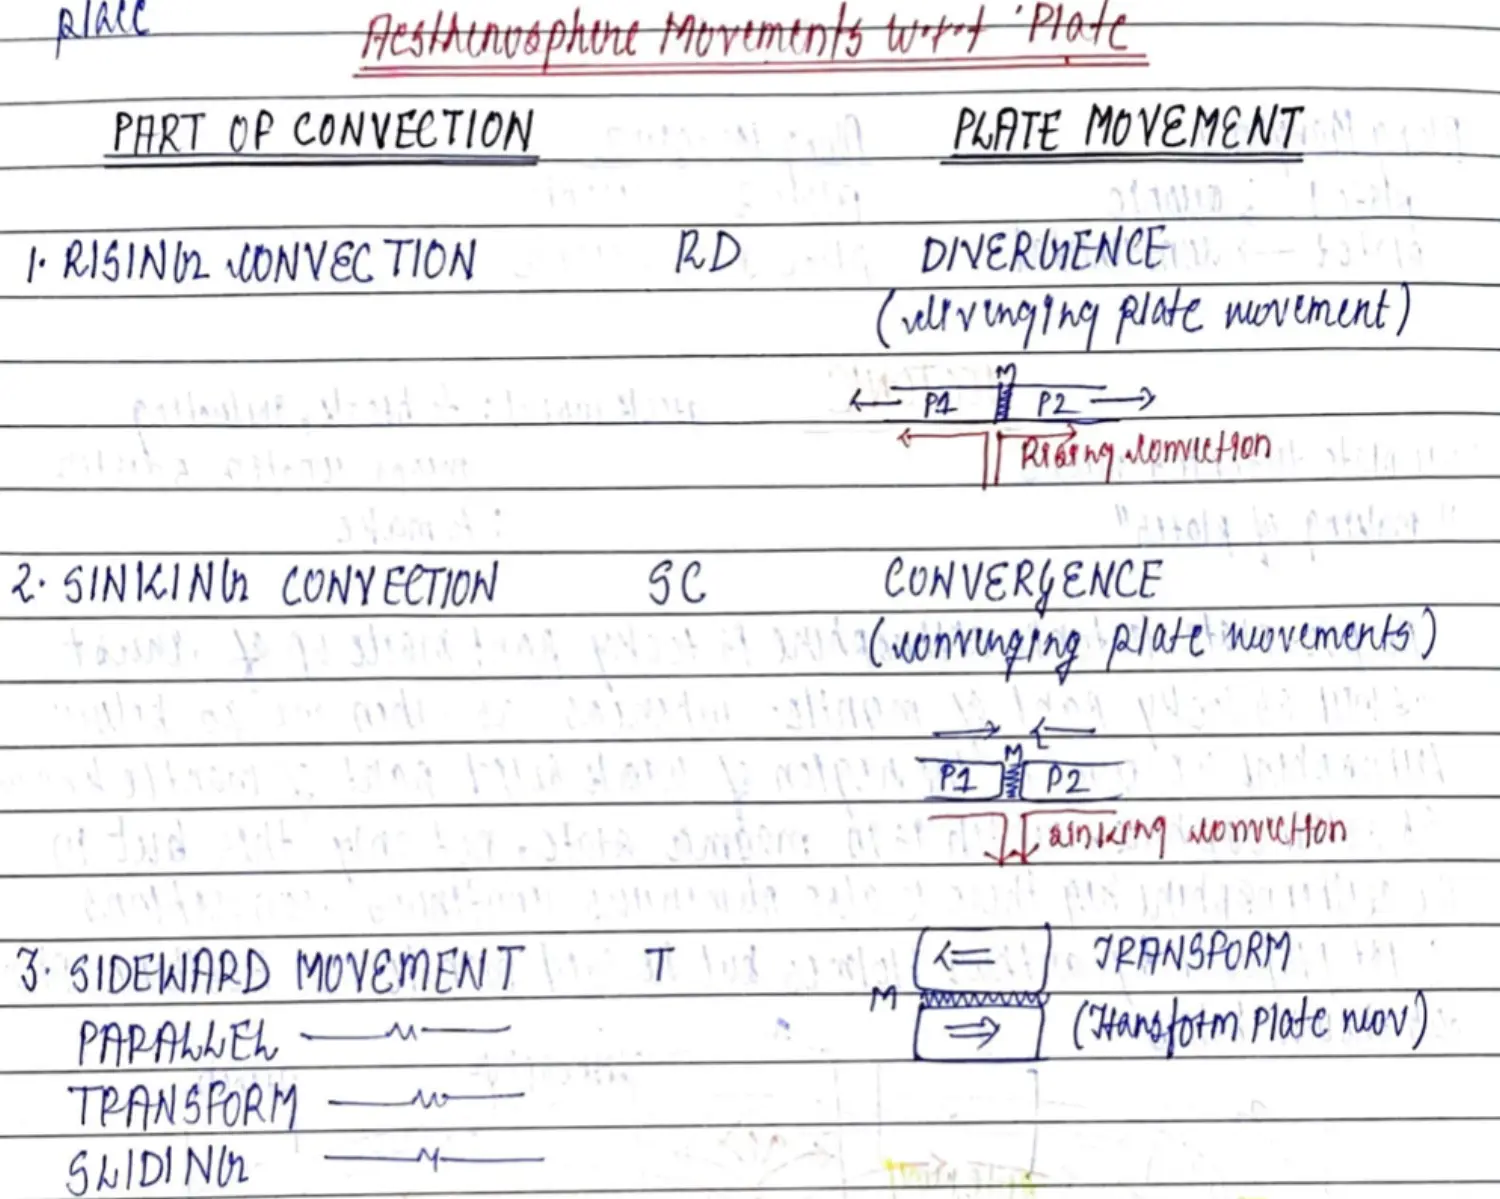 plate
Aesthenosphere Movements w.r.t Plate
PART OF CONVECTION PLATE MOVEMENT
1. RISING CONVECTION RD DIVERGENCE
(diverging plate movement)
M
P1 P2
Rising convection
2. SINKING CONVECTION SC CONVERGENCE
(converging plate movements)
M
P1 P2
sinking convection
3. SIDEWARD MOVEMENT T TRANSFORM
M
PARALLEL —〃— (Transform Plate mov)
TRANSFORM —〃—
SLIDING —〃—